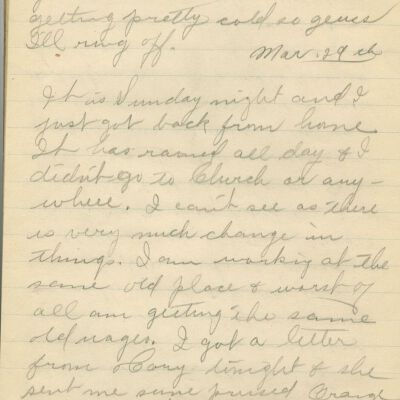 getting pretty cold so guess
I'll ring off.
Mar. 29th
It is Sunday night and I
just got back from home
It has rained all day & I
didn't go to Church or any-
where. I can't see as there
is very much change in
things. I am working at the
same old place & worst of
all am getting the same
old wages. I got a letter
from Cory tonight & she
sent me some pressed Orange